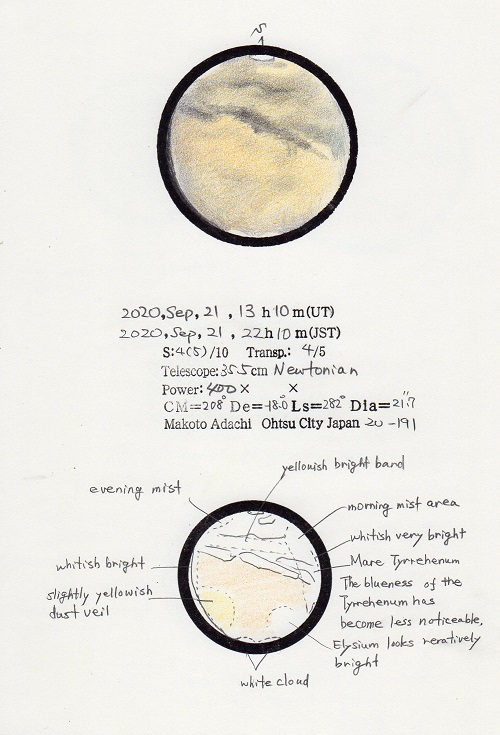 S
2020, Sep, 21, 13 h 10 m (UT)
2020, Sep, 21, 22 h 10 m (JST)
S: 4(5) /10 Transp.: 4/5
Telescope: 35.5cm Newtonian
Power: 400× ×
CM=208° De=-18.0 Ls=282° Dia=21".7
Makoto Adachi Ohtsu City Japan 20-191
yellowish bright band
evening mist
morning mist area
whitish very bright
whitish bright
Mare Tyrrehenum
slightly yellowish
dust veil
The blueness of the
Tyrrehenum has
become less noticeable,
Elysium looks reratively
bright
white cloud